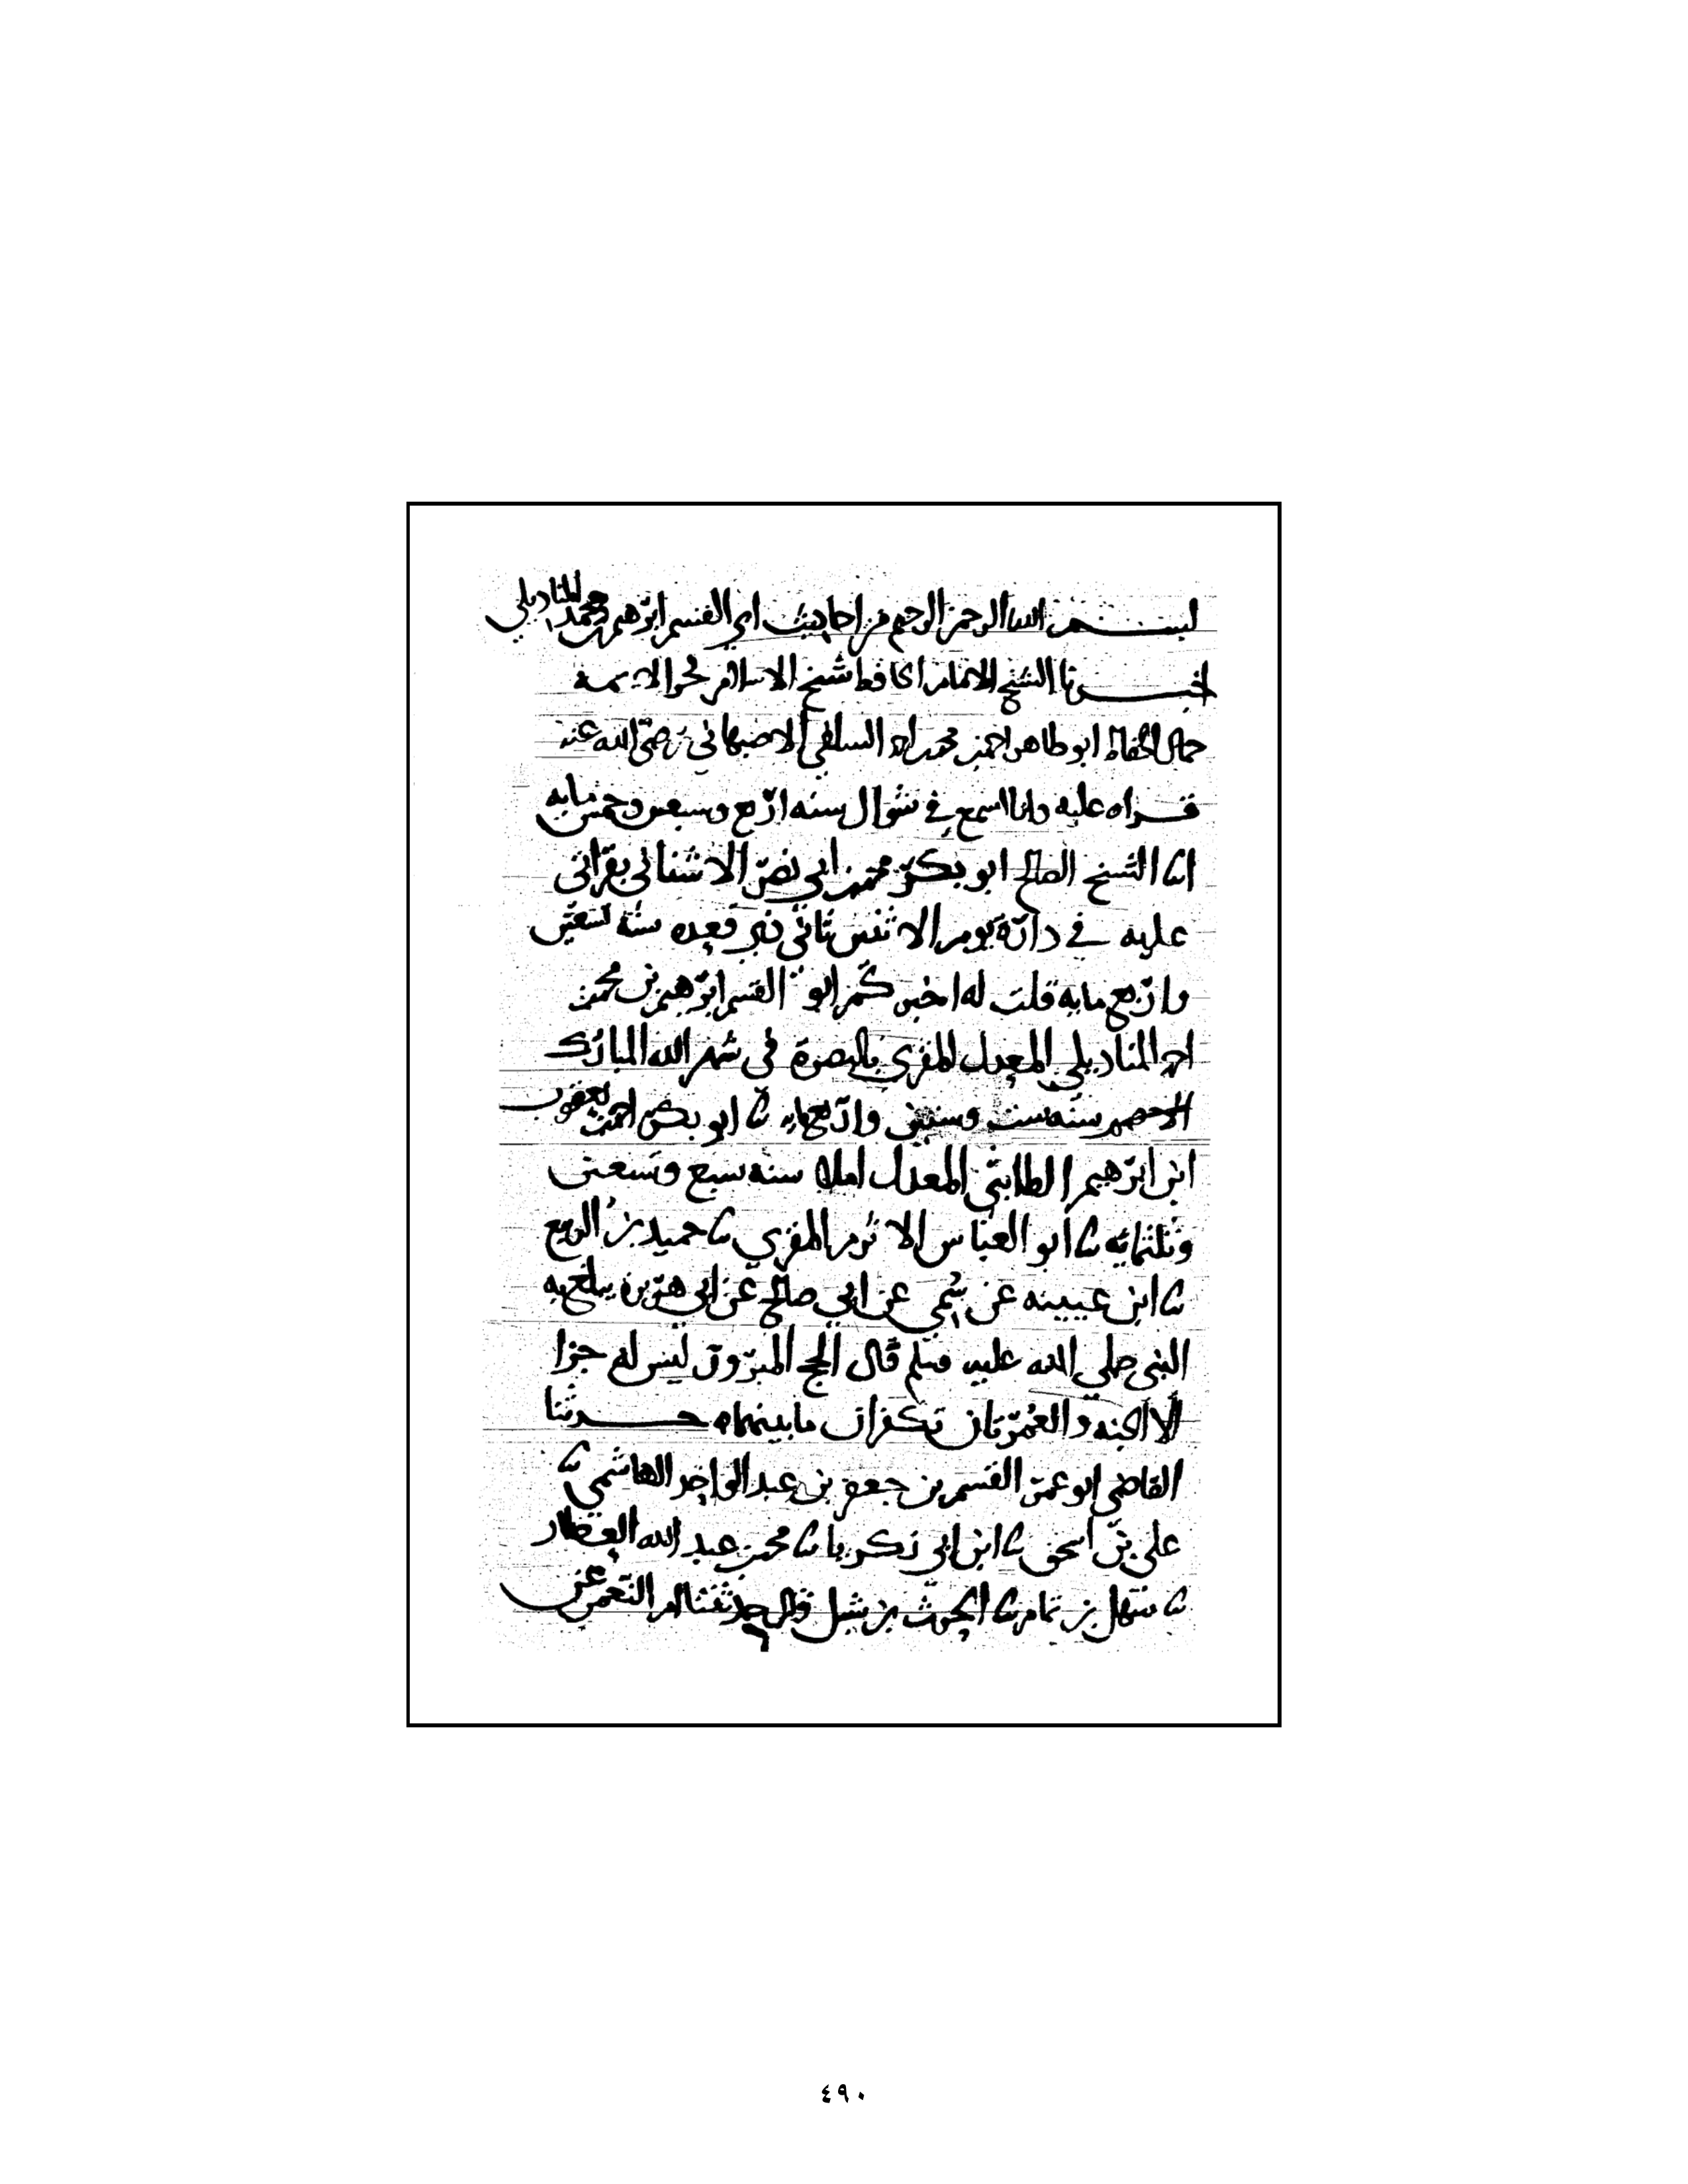 بسم الله الرحمن الرحيم من احاديث ابي القسم ابرهيم بن محمد المناديلي
اخبرنا الشيخ الامام الحافظ شيخ الاسلام فخر الايمة
جمال الحفاظ ابو طاهر احمد بن محمد بن احمد السلفي الاصبهاني رضي الله عنه
قراه عليه وانا اسمع في شوال سنه اربع وسبعين وخمس مايه
انا الشيخ الصالح ابو بكر محمد بن ابي نصر الاشناني بقراتي
عليه في داره يوم الاثنين ثاني ذي قعده سنة تسعين
واربع مايه قلت له اخبركم ابو القسم ابرهيم بن محمد بن
احمد المناديلي المعدل المقري بالبصرة في شهر الله المبارك
الاصم سنه ست وستين واربع مايه ثنا ابو بكر احمد بن يعقوب
ابن ابرهيم الطابثي المعدل املا سنه سبع وتسعين
وثلثمايه ثنا ابو العباس الاثرم المقري ثنا حميد بن الربيع
ثنا ابن عيينه عن سمي عن ابي صالح عن ابي هريرة يبلغ به
النبي صلي الله عليه وسلم قال الحج المبرور ليس له جزا
الا الجنه والعمرتان تكفران ما بينهما ه حدثنا
القاضي ابو عمر القسم بن جعفر بن عبد الواحد الهاشمي ثنا
علي بن اسحق ثنا ابن ابي زكريا ثنا محمد بن عبد الله العطار
ثنا سهل بن تمام ثنا الحرث بن شبل قال حدثتنا ام النعمن عن
٤٩٠